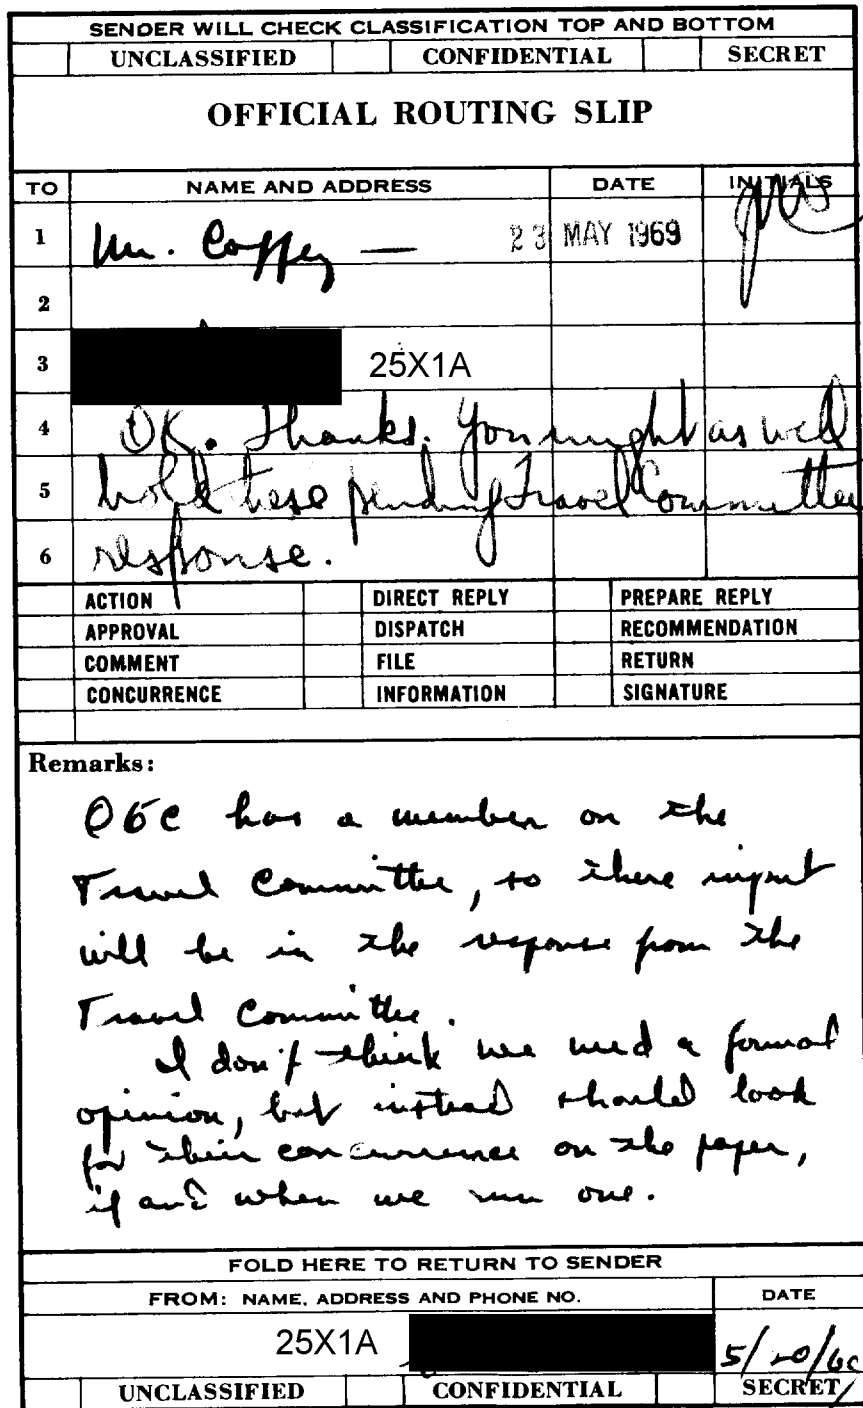 SENDER WILL CHECK CLASSIFICATION TOP AND BOTTOM
UNCLASSIFIED CONFIDENTIAL SECRET
OFFICIAL ROUTING SLIP
TO NAME AND ADDRESS DATE INITIALS
1 Mr. Coffey — 23 MAY 1969
2
3 25X1A
4 OK. Thanks. You might as well
5 hold these pending Travel Committee
6 response.
ACTION DIRECT REPLY PREPARE REPLY
APPROVAL DISPATCH RECOMMENDATION
COMMENT FILE RETURN
CONCURRENCE INFORMATION SIGNATURE
Remarks:
OGC has a member on the
Travel Committee, so there input
will be in the response from the
Travel Committee.
I don't think we need a formal
opinion, but instead should look
for their concurrence on the paper,
if and when we run one.
FOLD HERE TO RETURN TO SENDER
FROM: NAME, ADDRESS AND PHONE NO. DATE
25X1A 5/20/69
UNCLASSIFIED CONFIDENTIAL SECRET